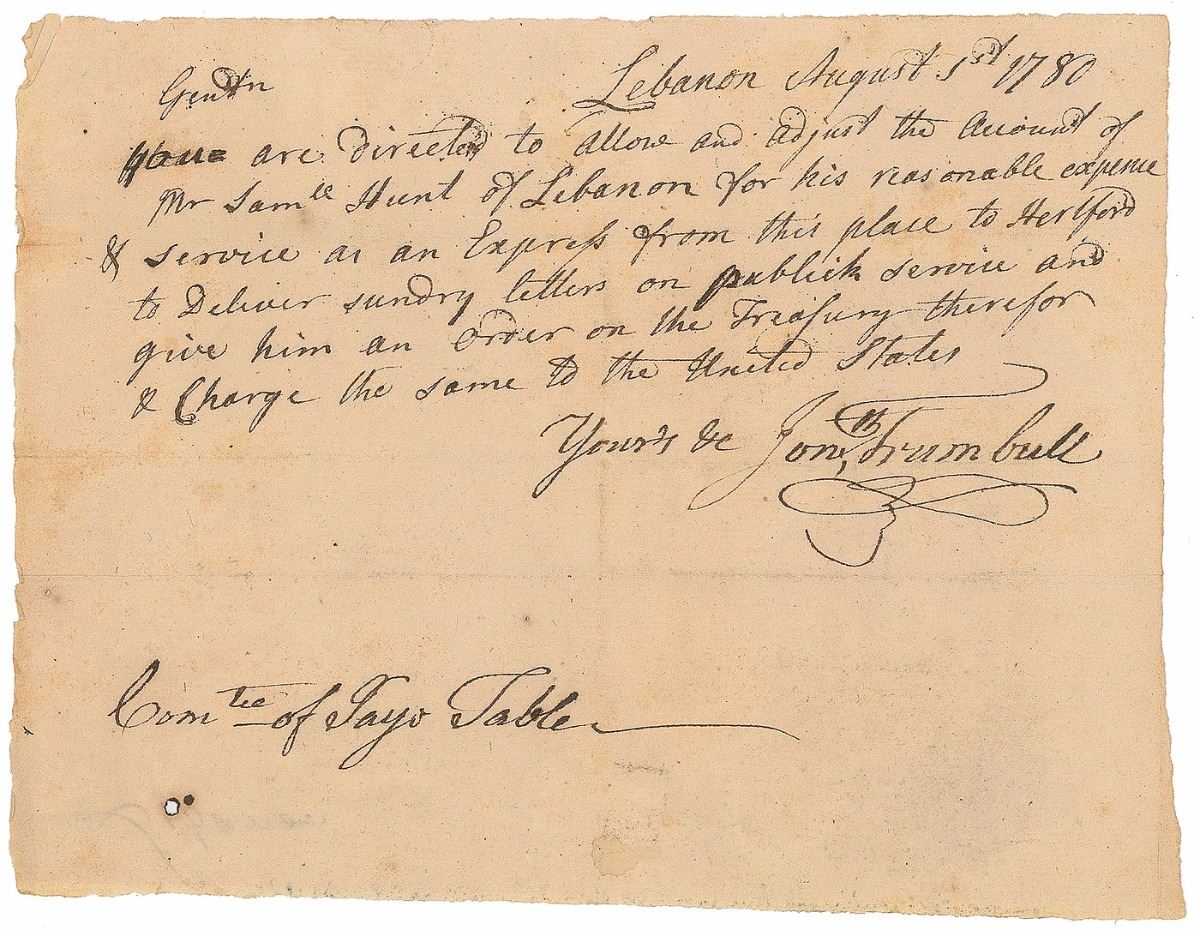 Lebanon August 1st 1780
Gentn
You are directed to allow and adjust the Account of
Mr Samll Hunt of Lebanon for his reasonable expense
& service as an Express from this place to Hertford
to Deliver sundry letters on publick service and
give him an order on the Treasury therefor
& Charge the same to the United States
Your's &c Jonth Trumbull
Comtee of Pays Table